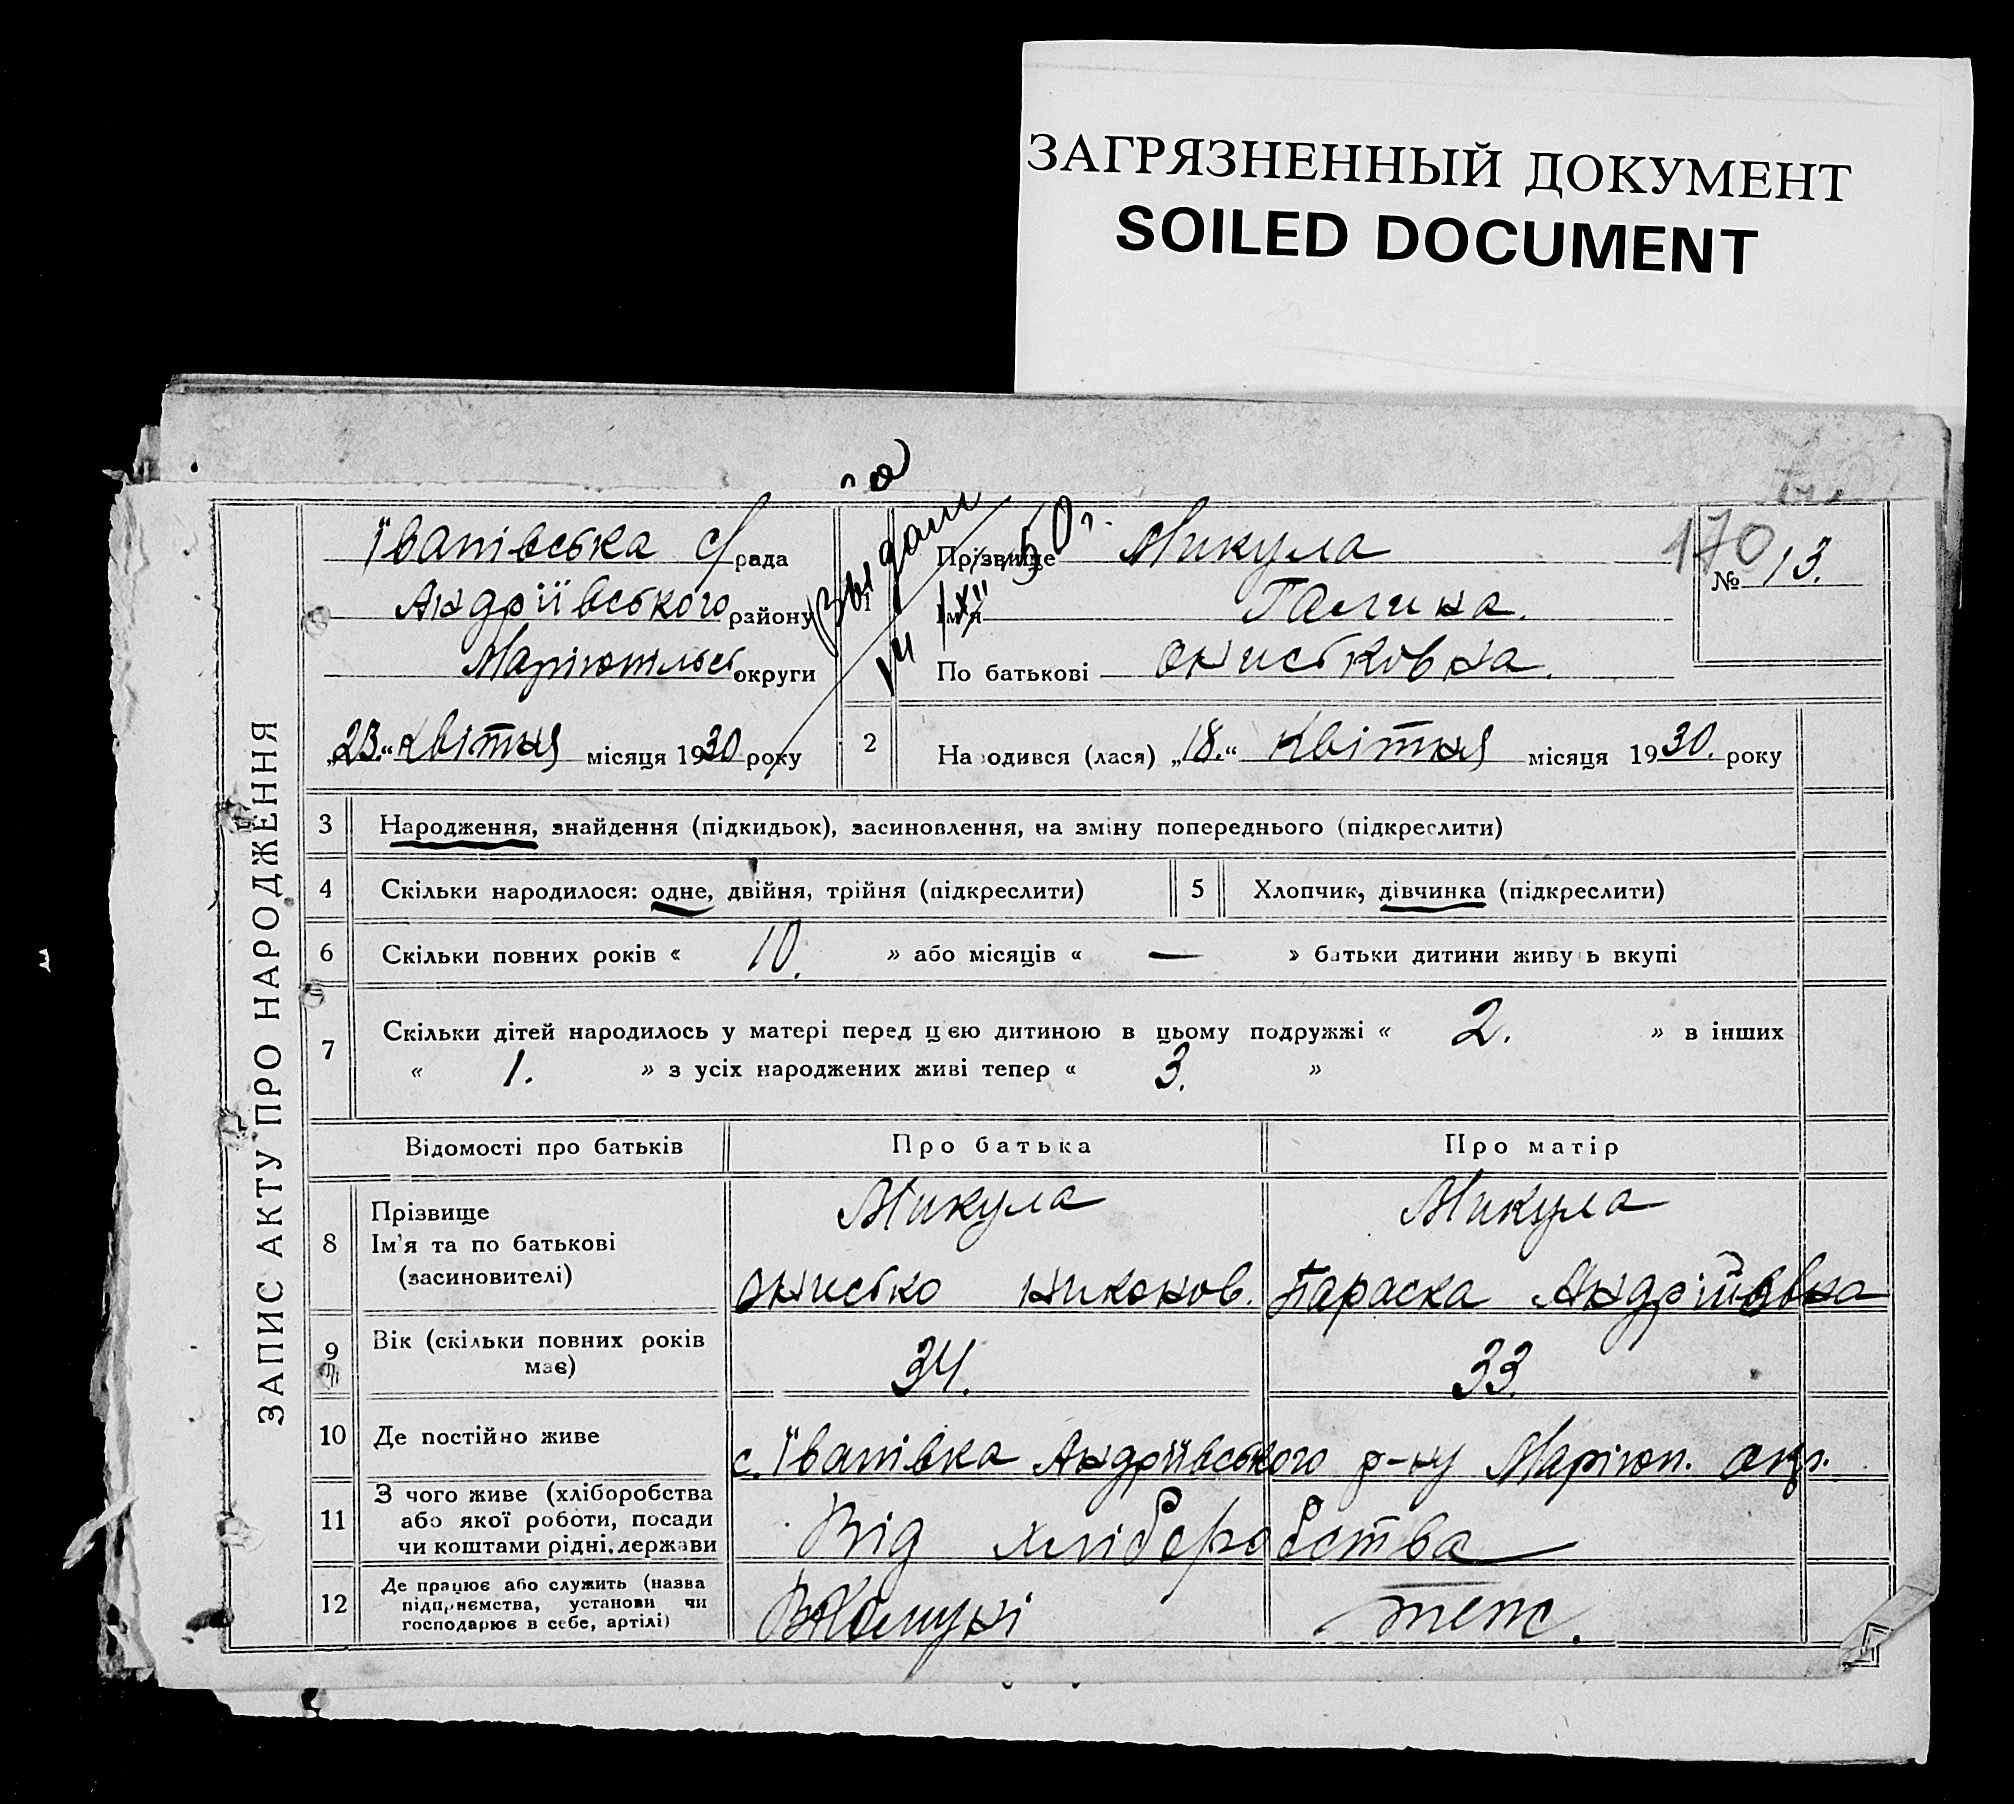 ЗАГРЯЗНЕННЫЙ ДОКУМЕНТ
SOILED DOCUMENT
ЗАПИС АКТУ ПРО НАРОДЖЕННЯ
Івапівська с/рада
Андріївського району
Маріюпільсь округи
„23.“ квітня місяця 1930 року
Выдано
14/XII 50 г.
170
№ 13.
1 Прізвище Микула
Ім'я Галина.
По батькові Онистковна.
2 Народився (лася) „18.“ квітня місяця 1930. року
3 Народження, знайдення (підкидьок), засиновлення, на зміну попереднього (підкреслити)
4 Скільки народилося: одне, двійня, трійня (підкреслити)
5 Хлопчик, дівчинка (підкреслити)
6 Скільки повних років « 10. » або місяців « — » батьки дитини живуть вкупі
7 Скільки дітей народилось у матері перед цією дитиною в цьому подружжі « 2. » в інших
« 1. » з усіх народжених живі тепер « 3. »
Відомості про батьків Про батька Про матір
8 Прізвище
Ім'я та по батькові
(засиновителі)
Микула Микула
Онисько Никонов. Параска Андрійовна
9 Вік (скільки повних років
має)
34. 33.
10 Де постійно живе
с. Івапівка Андріївського р-ну Маріюп. окр.
11 З чого живе (хліборобства
або якої роботи, посади
чи коштами рідні, держави
Від хліборобства
12 Де працює або служить (назва
підприємства, установи чи
господарює в себе, артілі)
В Комуні теж.